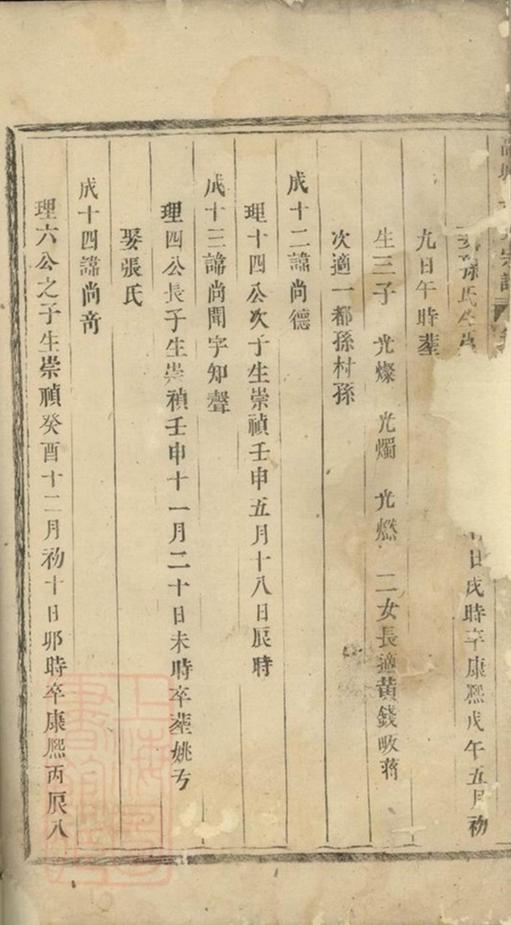 日戌時卒康熈戊午五月初
九日午時塟
生三子 光燦 光燭 光燃 二女長適黄錢畈蔣
次適一都孫村孫
成十二諱尚德
理十四公次子生崇禎壬申五月十八日辰時
成十三諱尚聞字知聲
理四公長子生崇禎壬申十一月二十日未時卒塟姚方
娶張氏
成十四諱尚奇
理六公之子生崇禎癸酉十二月初十日卯時卒康熈丙辰八